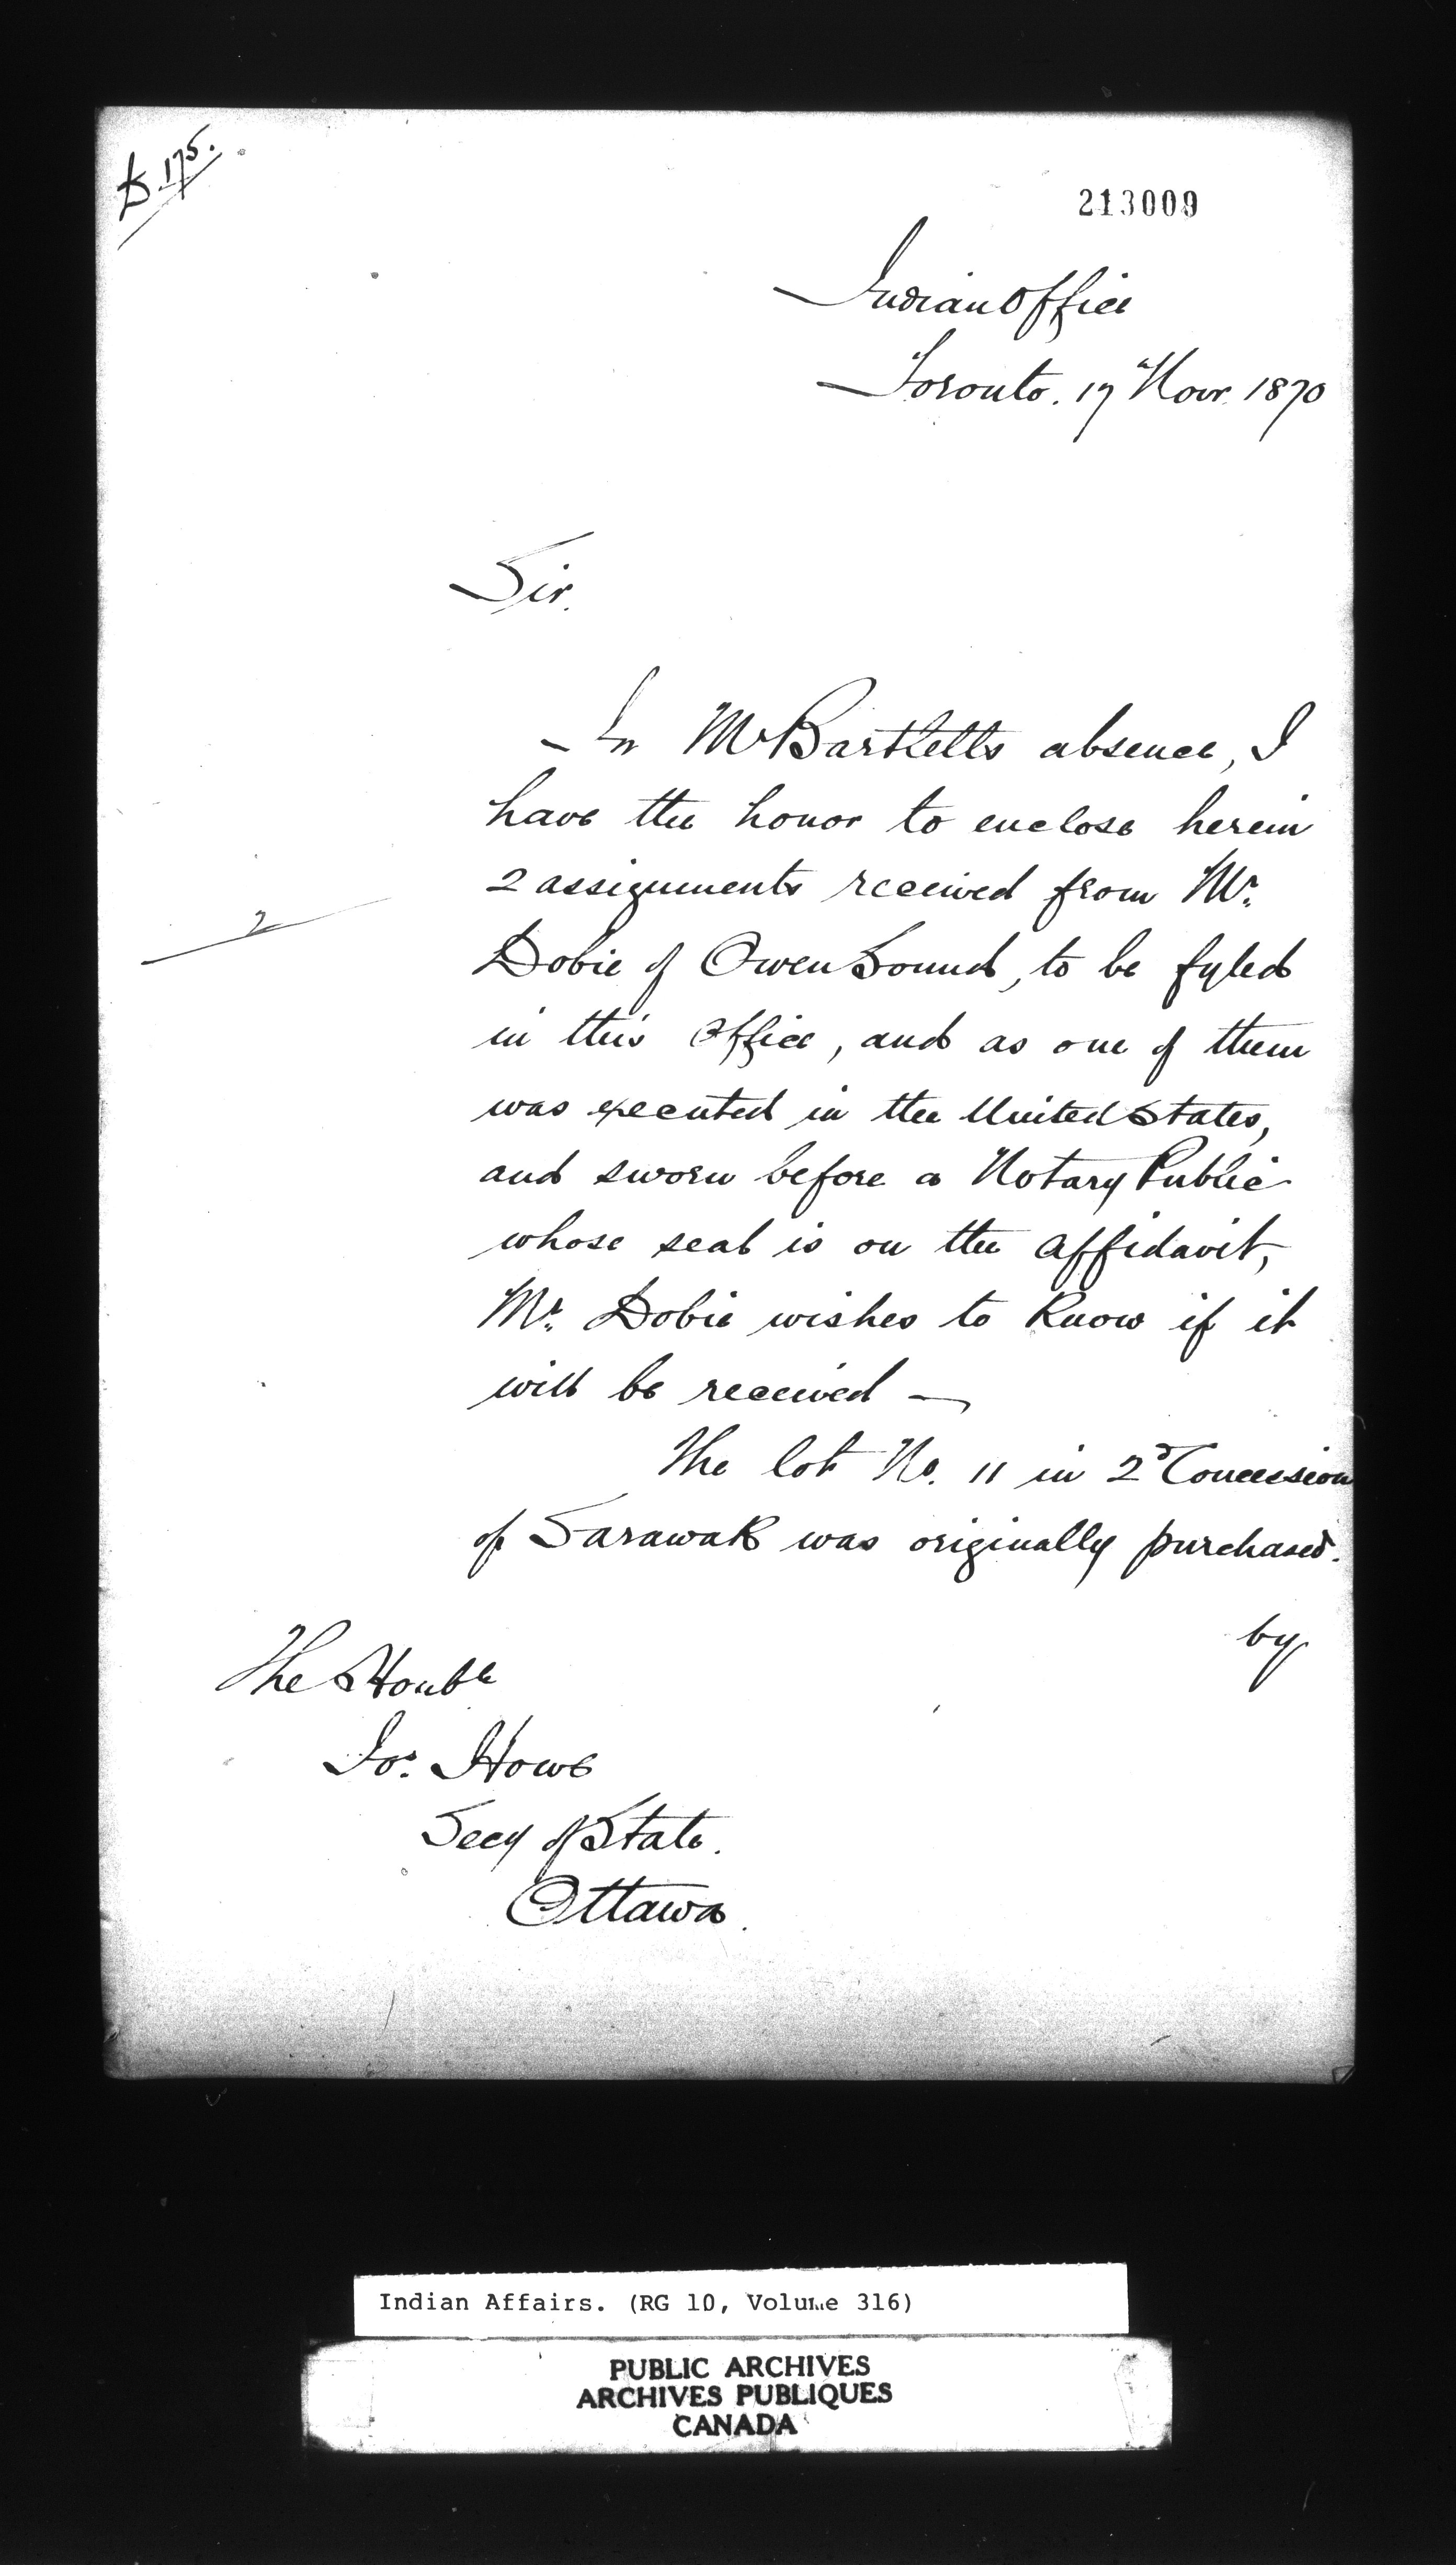 D 175.
213009
Indian Office
Toronto. 17" Novr. 1870
Sir.
In Mr Bartletts absence, I
have the honor to enclose herein
2 assignments received from Mr.
2
Dobie of Owen Sound, to be fyled
in this Office, and as one of them
was executed in the United States,
and sworn before a Notary Public
whose seal is on the affidavit,
Mr. Dobie wishes to know if it
will be received —
The lot No. 11 in 2d Concession
of Sarawak was originally purchased.
by
The Honble
Jos. Howe
Secy of State.
Ottawa.
Indian Affairs. (RG 10, Volume 316)
PUBLIC ARCHIVES
ARCHIVES PUBLIQUES
CANADA